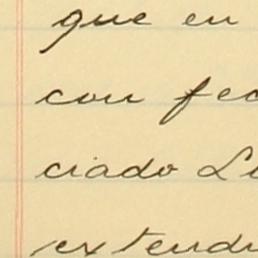 que en
con fec
ciado Li
extendi